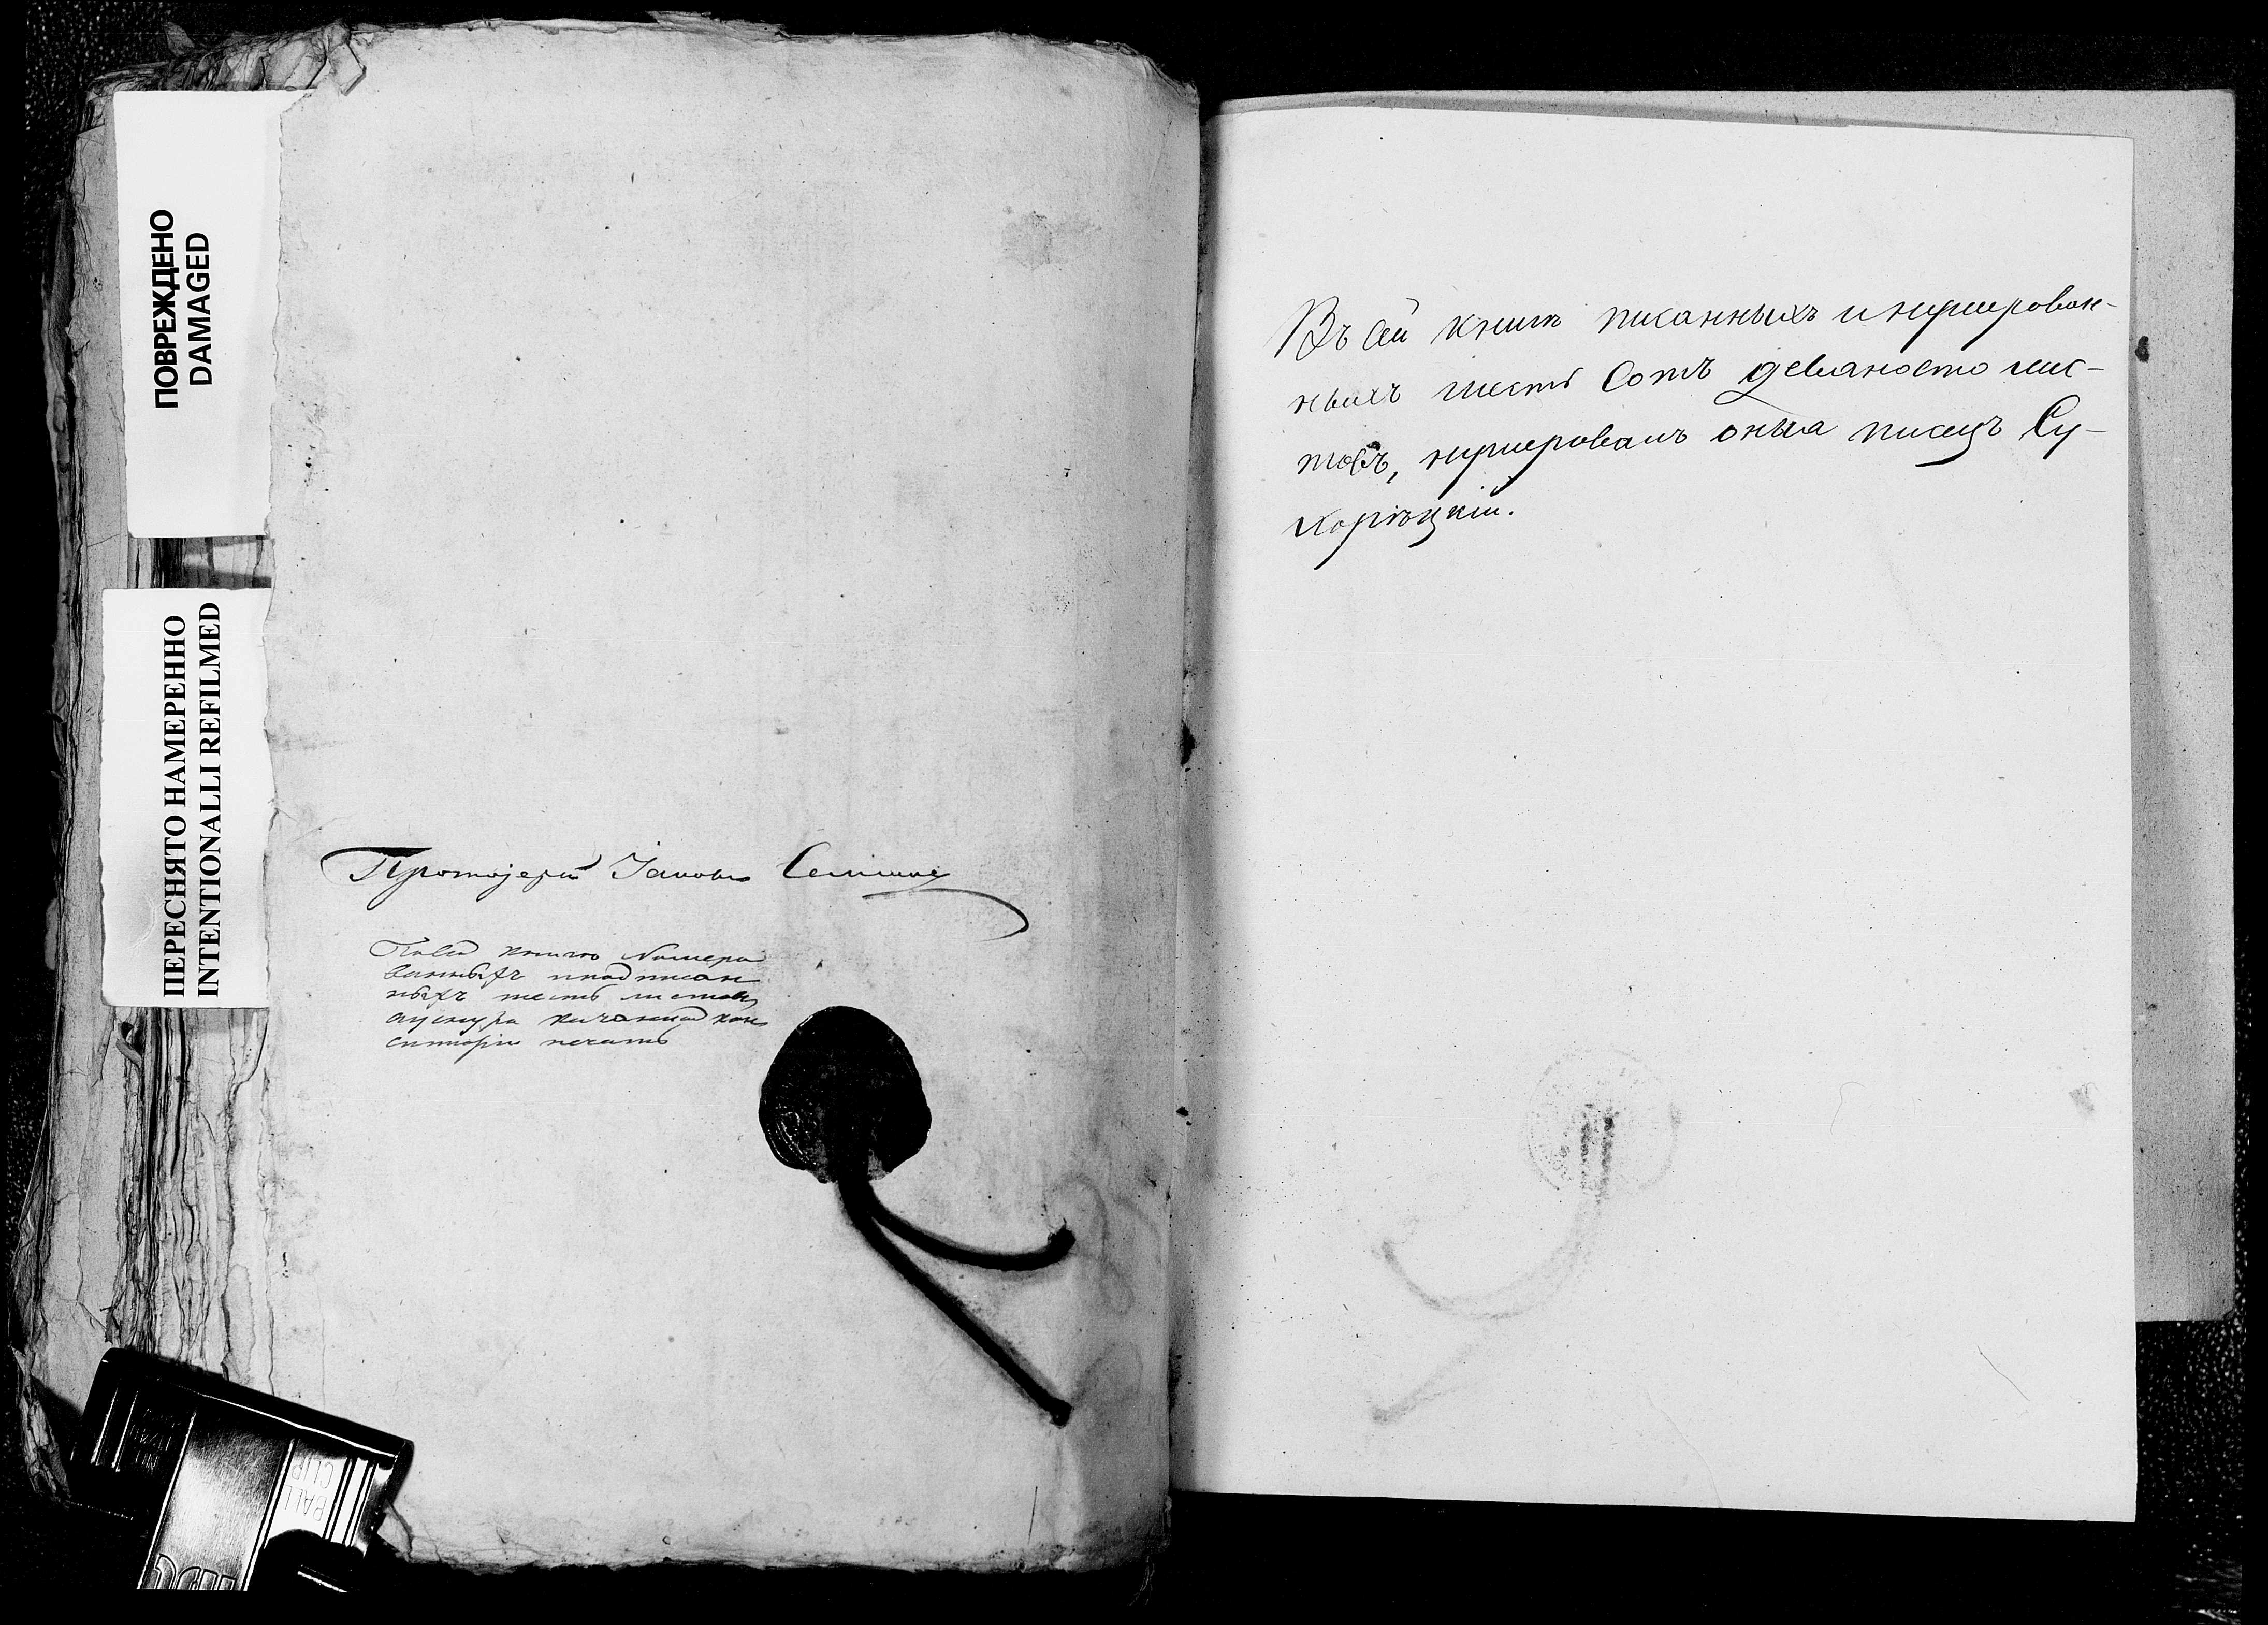 ПОВРЕЖДЕНО
DAMAGED
ПЕРЕСНЯТО НАМЕРЕННО
INTENTIONALLI REFILMED
Протоіерей Іаковъ
номеро
ванныхъ и подписан
ныхъ шесть листовъ
кон
систоріи печать
Въ сей книгѣ писанныхъ и нумерован-
ныхъ шесть сотъ девяносто лис-
товъ, нумеровалъ оныя писецъ Су-
хорѣцкій.
BALL
CLIP